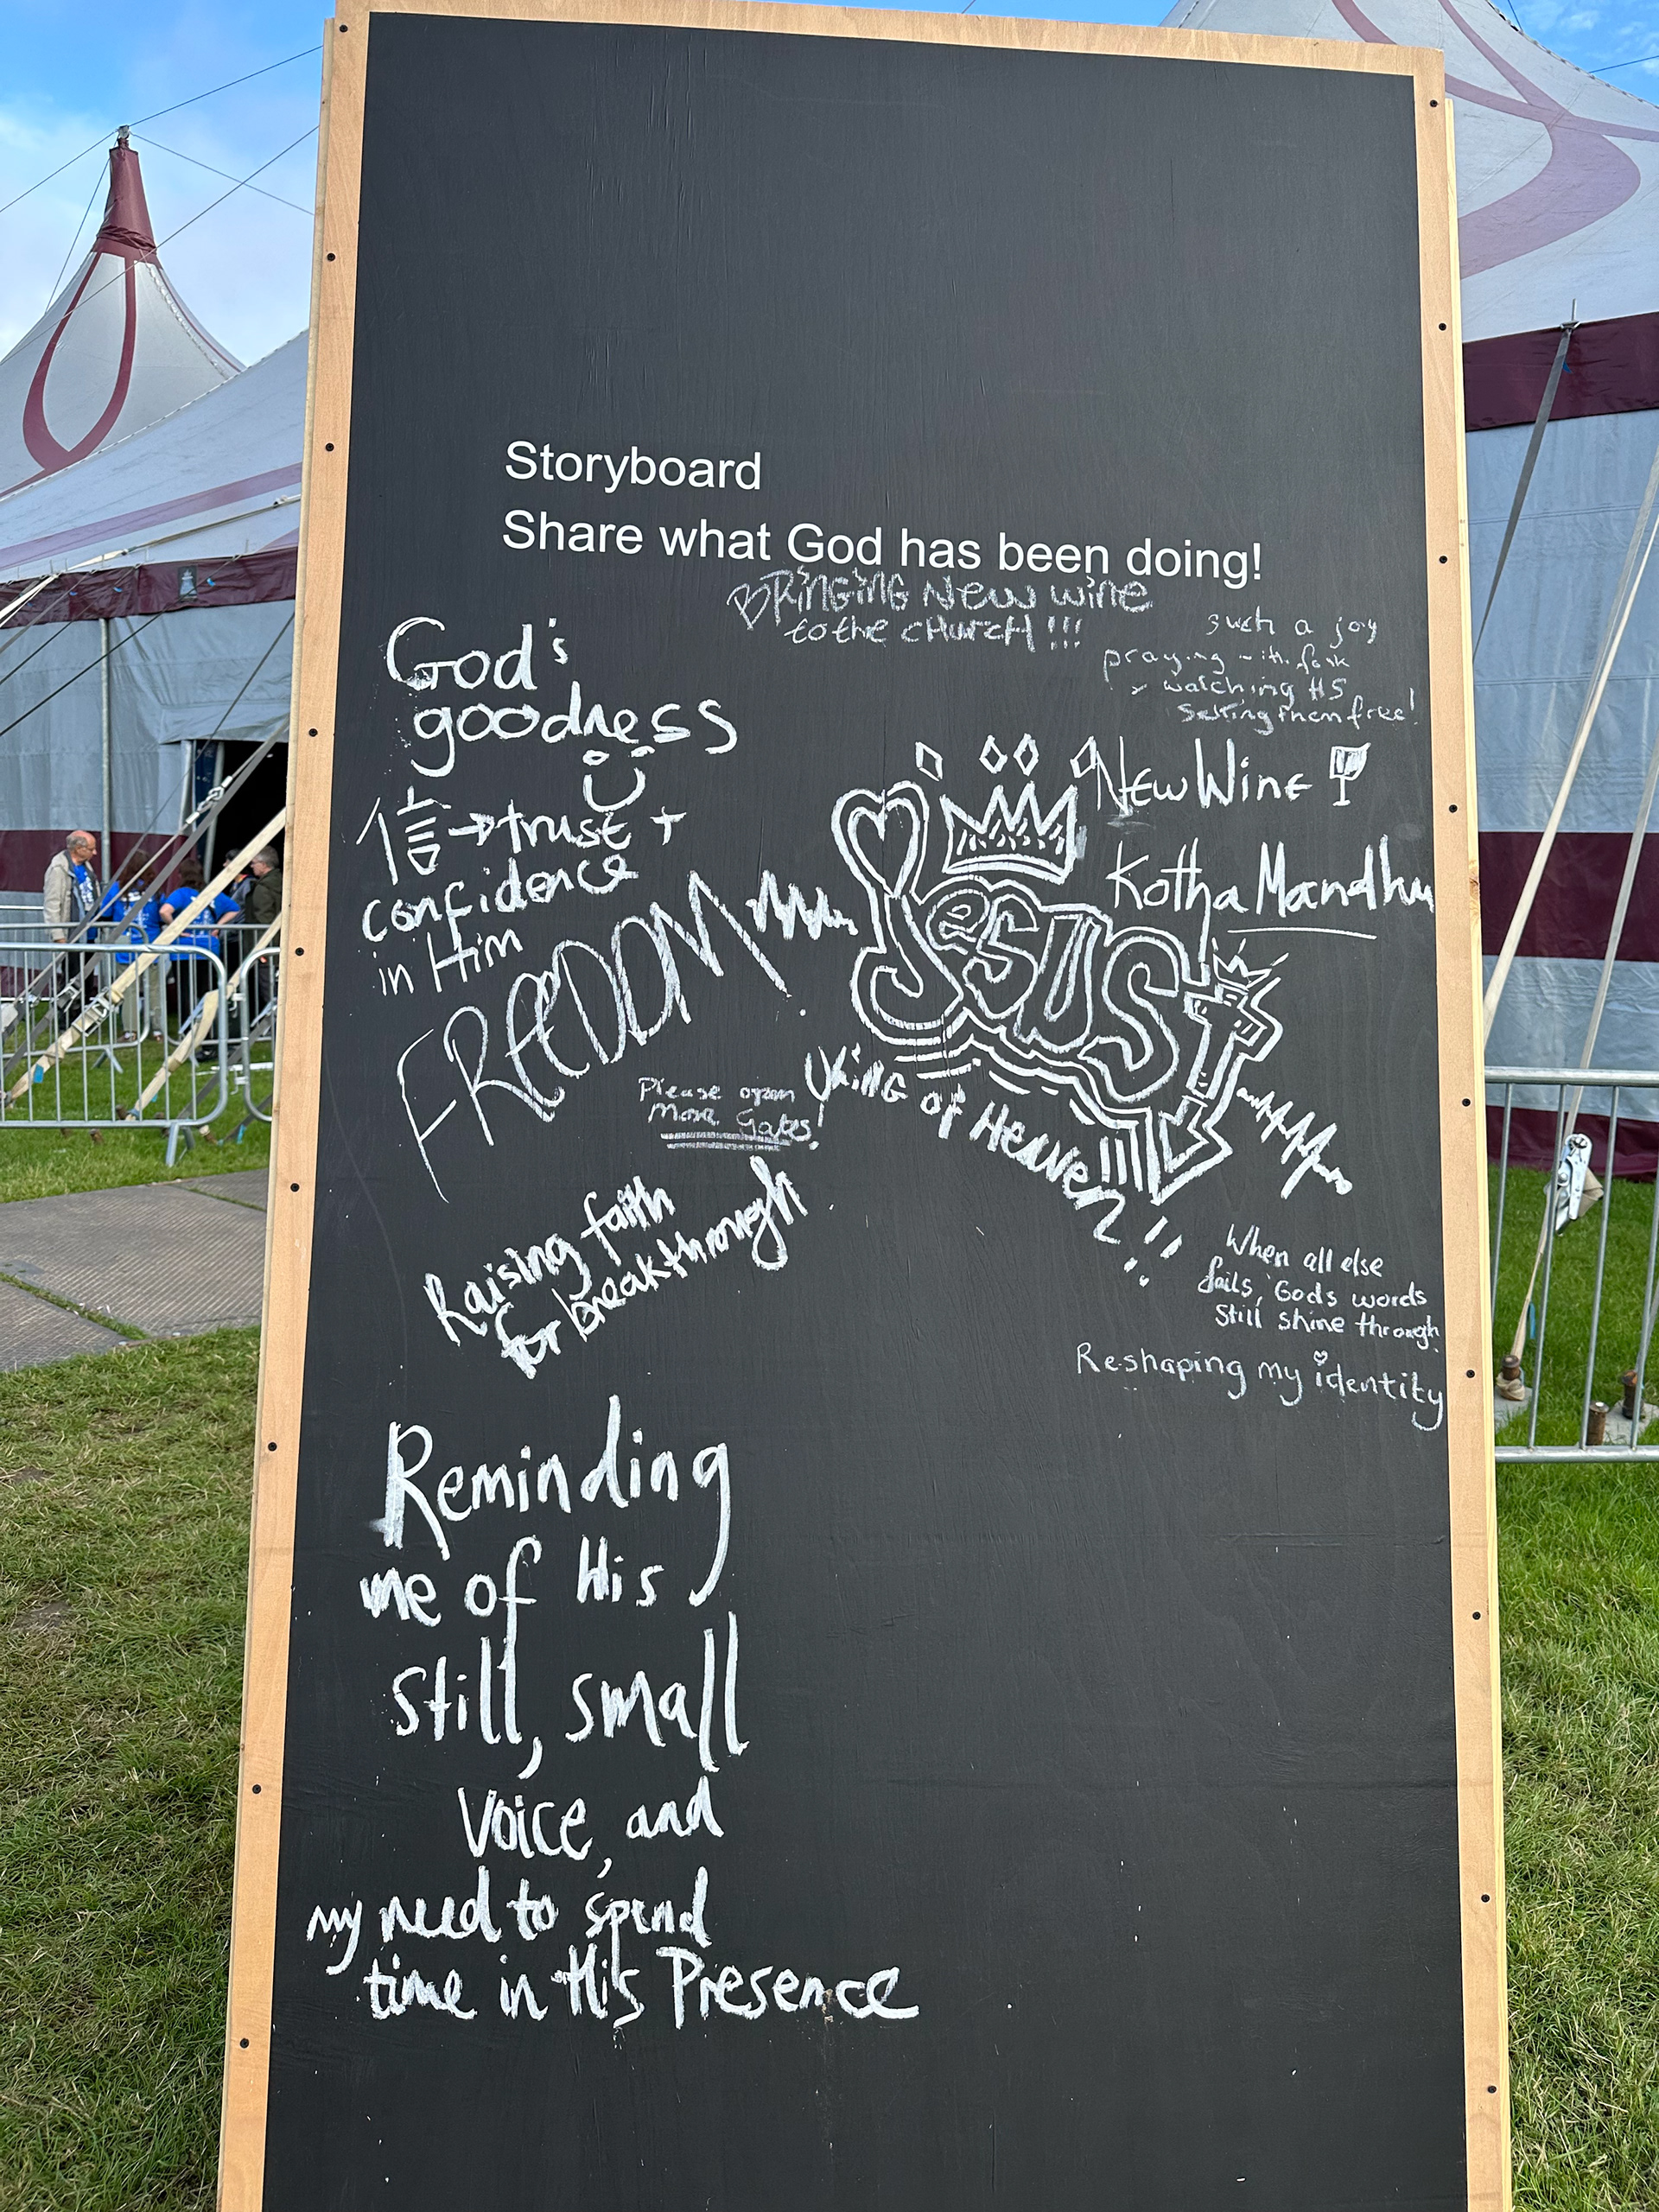 Storyboard
Share what God has been doing!
BRINGING New wine
to the CHURCH !!!
such a joy
praying with folk
watching HS
Setting them free!
God's
goodness
信→trust +
confidence
in Him
New Wine
Kotha Mandhu
JESUS
FREEDOM
KiNG of HEAVEN!!
Please open
More Gates!
Raising faith
for breakthrough
When all else
fails, Gods words
still shine through
Reshaping my identity
Reminding
me of His
still, small
voice, and
my need to spend
time in His Presence